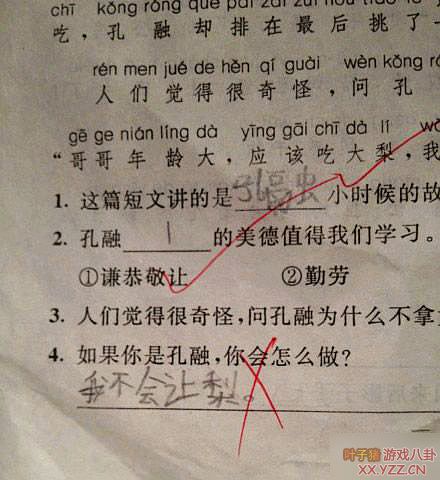 chī kǒng róng què pái zài zuì hòu tiāo le
吃，孔 融 却 排 在 最 后 挑 了
rén men jué de hěn qí guài wèn kǒng r
人 们 觉 得 很 奇 怪，问 孔
gē ge nián líng dà yīng gāi chī dà lí wǒ
“哥 哥 年 龄 大，应 该 吃 大 梨，我
1. 这篇短文讲的是 孔融 小时候的故
2. 孔融 1 的美德值得我们学习。
①谦恭敬让 ②勤劳
3. 人们觉得很奇怪，问孔融为什么不拿
4. 如果你是孔融，你会怎么做？
我不会让梨。
叶子猪 游戏八卦
XX.YZZ.CN